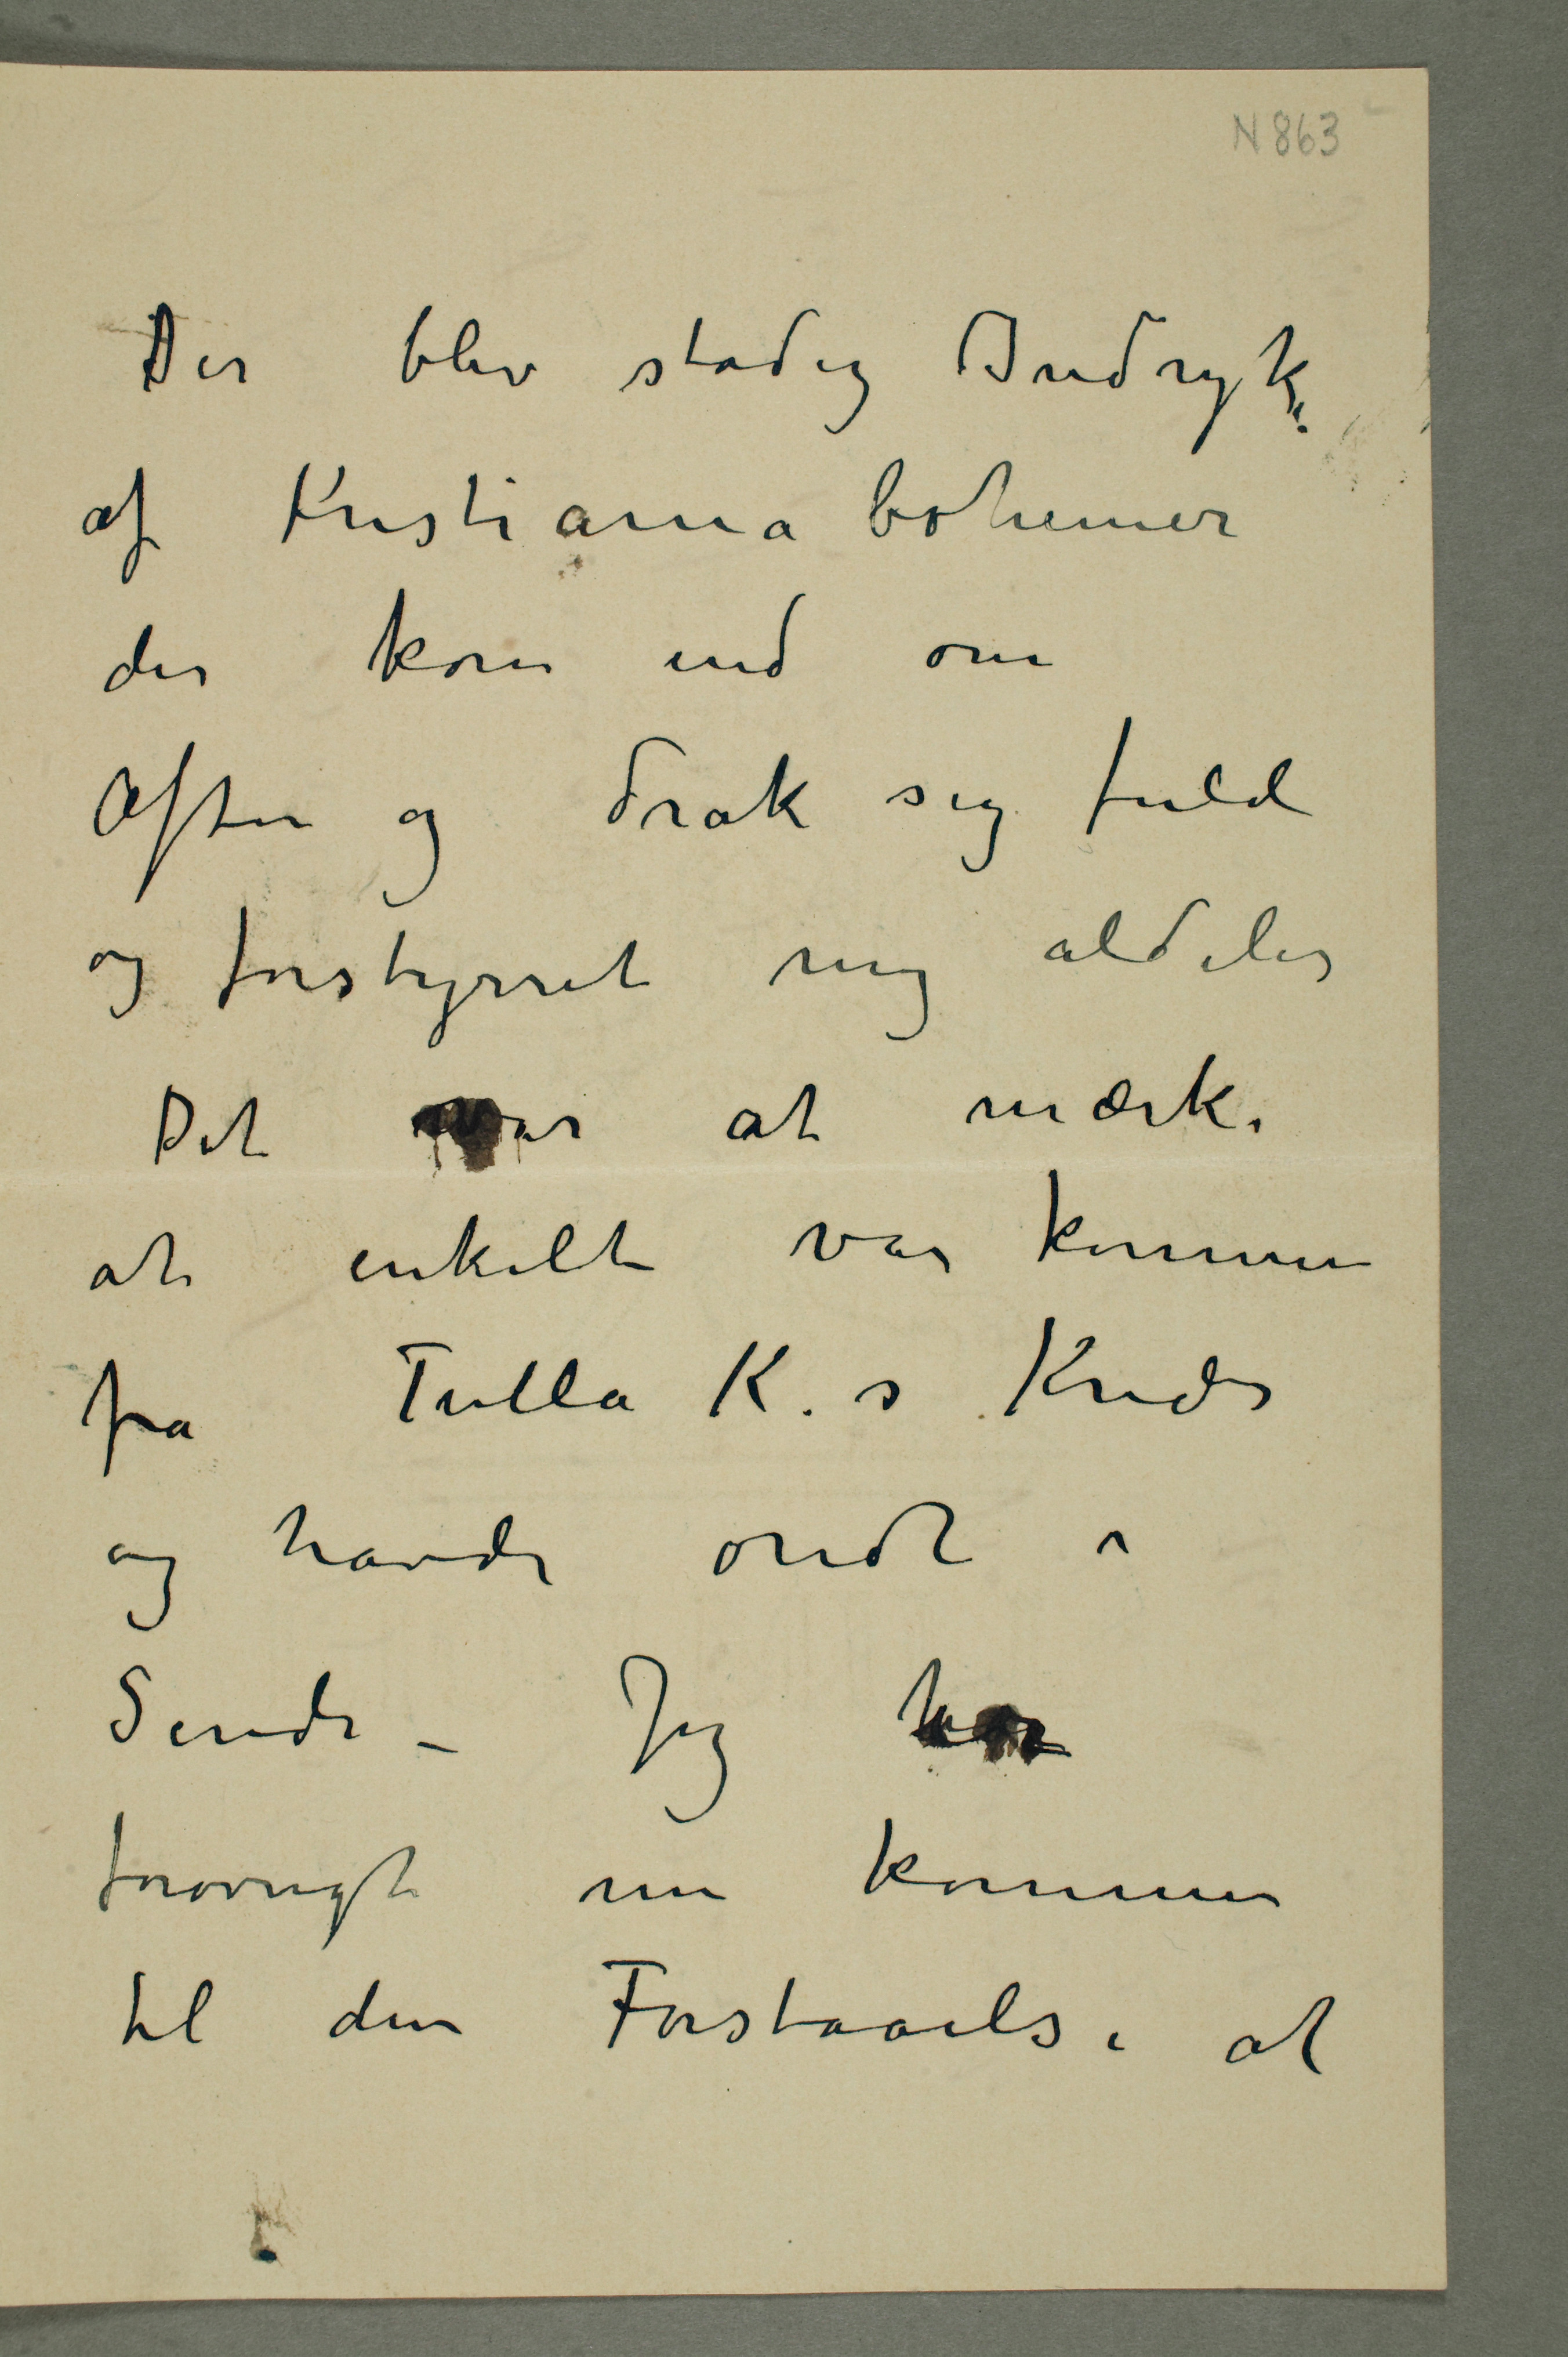 N 863
Der blev stadig Indryk
af Kristianiabohemer
der kom ind om
Aften og drak sig fuld
og forstyrret mig aldeles
Det var at mærke
at enkelte var kommen
fra Tulla K. s Kreds
og havde ondt i
Sinde – Jeg har
forøvrigt nu kommen
til den Forstaaelse at